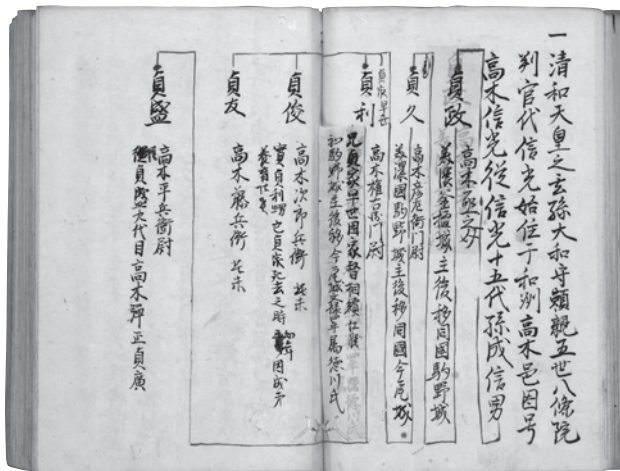 一清和天皇之玄孫大和守頼親五世八條院
判官代信光始住于和刕高木邑因号
高木信光從信光十五代孫成信男
貞政
高木
美濃
城主後移同國駒野城
貞久
高木彦左衛門尉
美濃國駒野城主後移同國今尾城
貞家早世
貞利
高木権右衛門尉
兄貞家早世因家督相續仕
初駒野城主後移今尾城
属德川氏
貞俊
高木次郎兵衛
實貞利甥也貞家死去之時
因成
貞友
高木藤兵衛
貞盛
高木平兵衛尉
從貞成九代目高木彈正貞廣